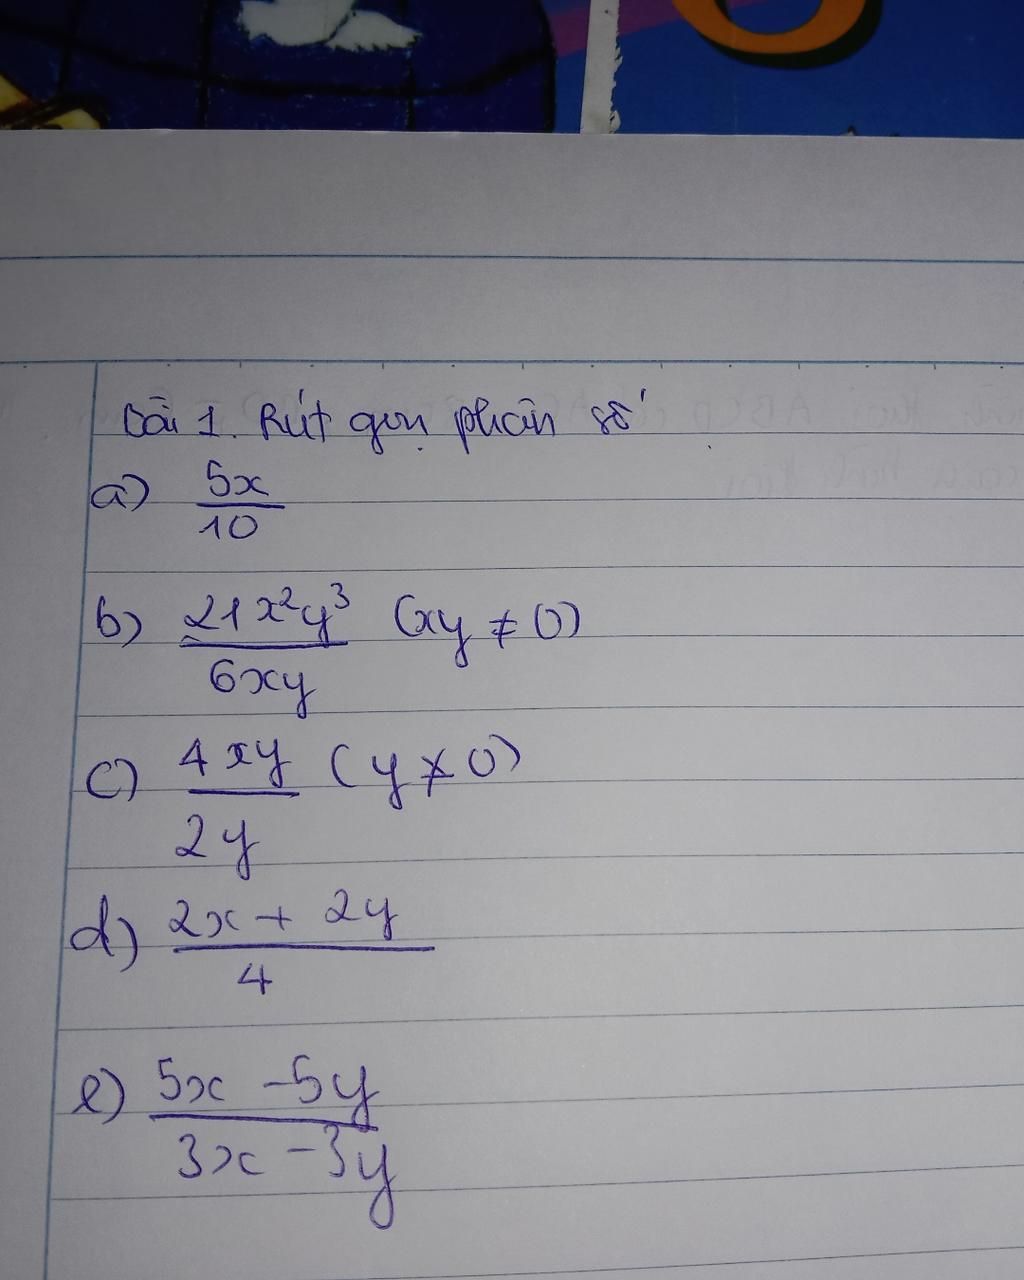 Bài 1. Rút gọn phân số
a) 5x/10
b) 21x²y³/6xy (xy ≠ 0)
c) 4xy/2y (y ≠ 0)
d) 2x + 2y/4
e) 5x - 5y/3x - 3y